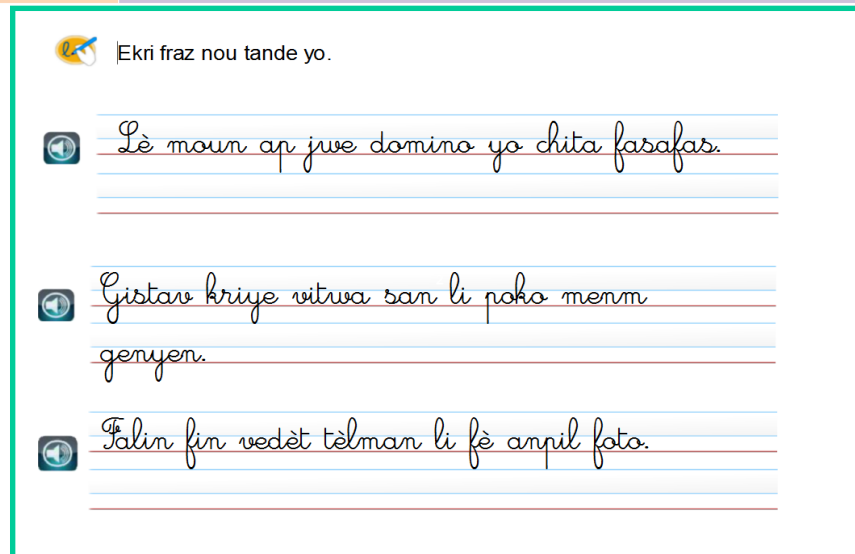 Ekri fraz nou tande yo.
Lè moun ap jwe domino yo chita fasafas.
Gistav kriye vitwa san li poko menm
genyen.
Falin fin vedèt tèlman li fè anpil foto.